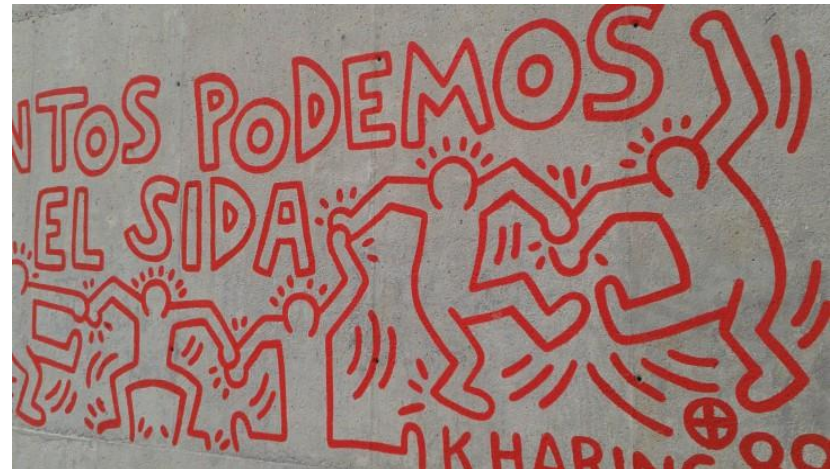 NTOS PODEMOS
EL SIDA
K HARING 89